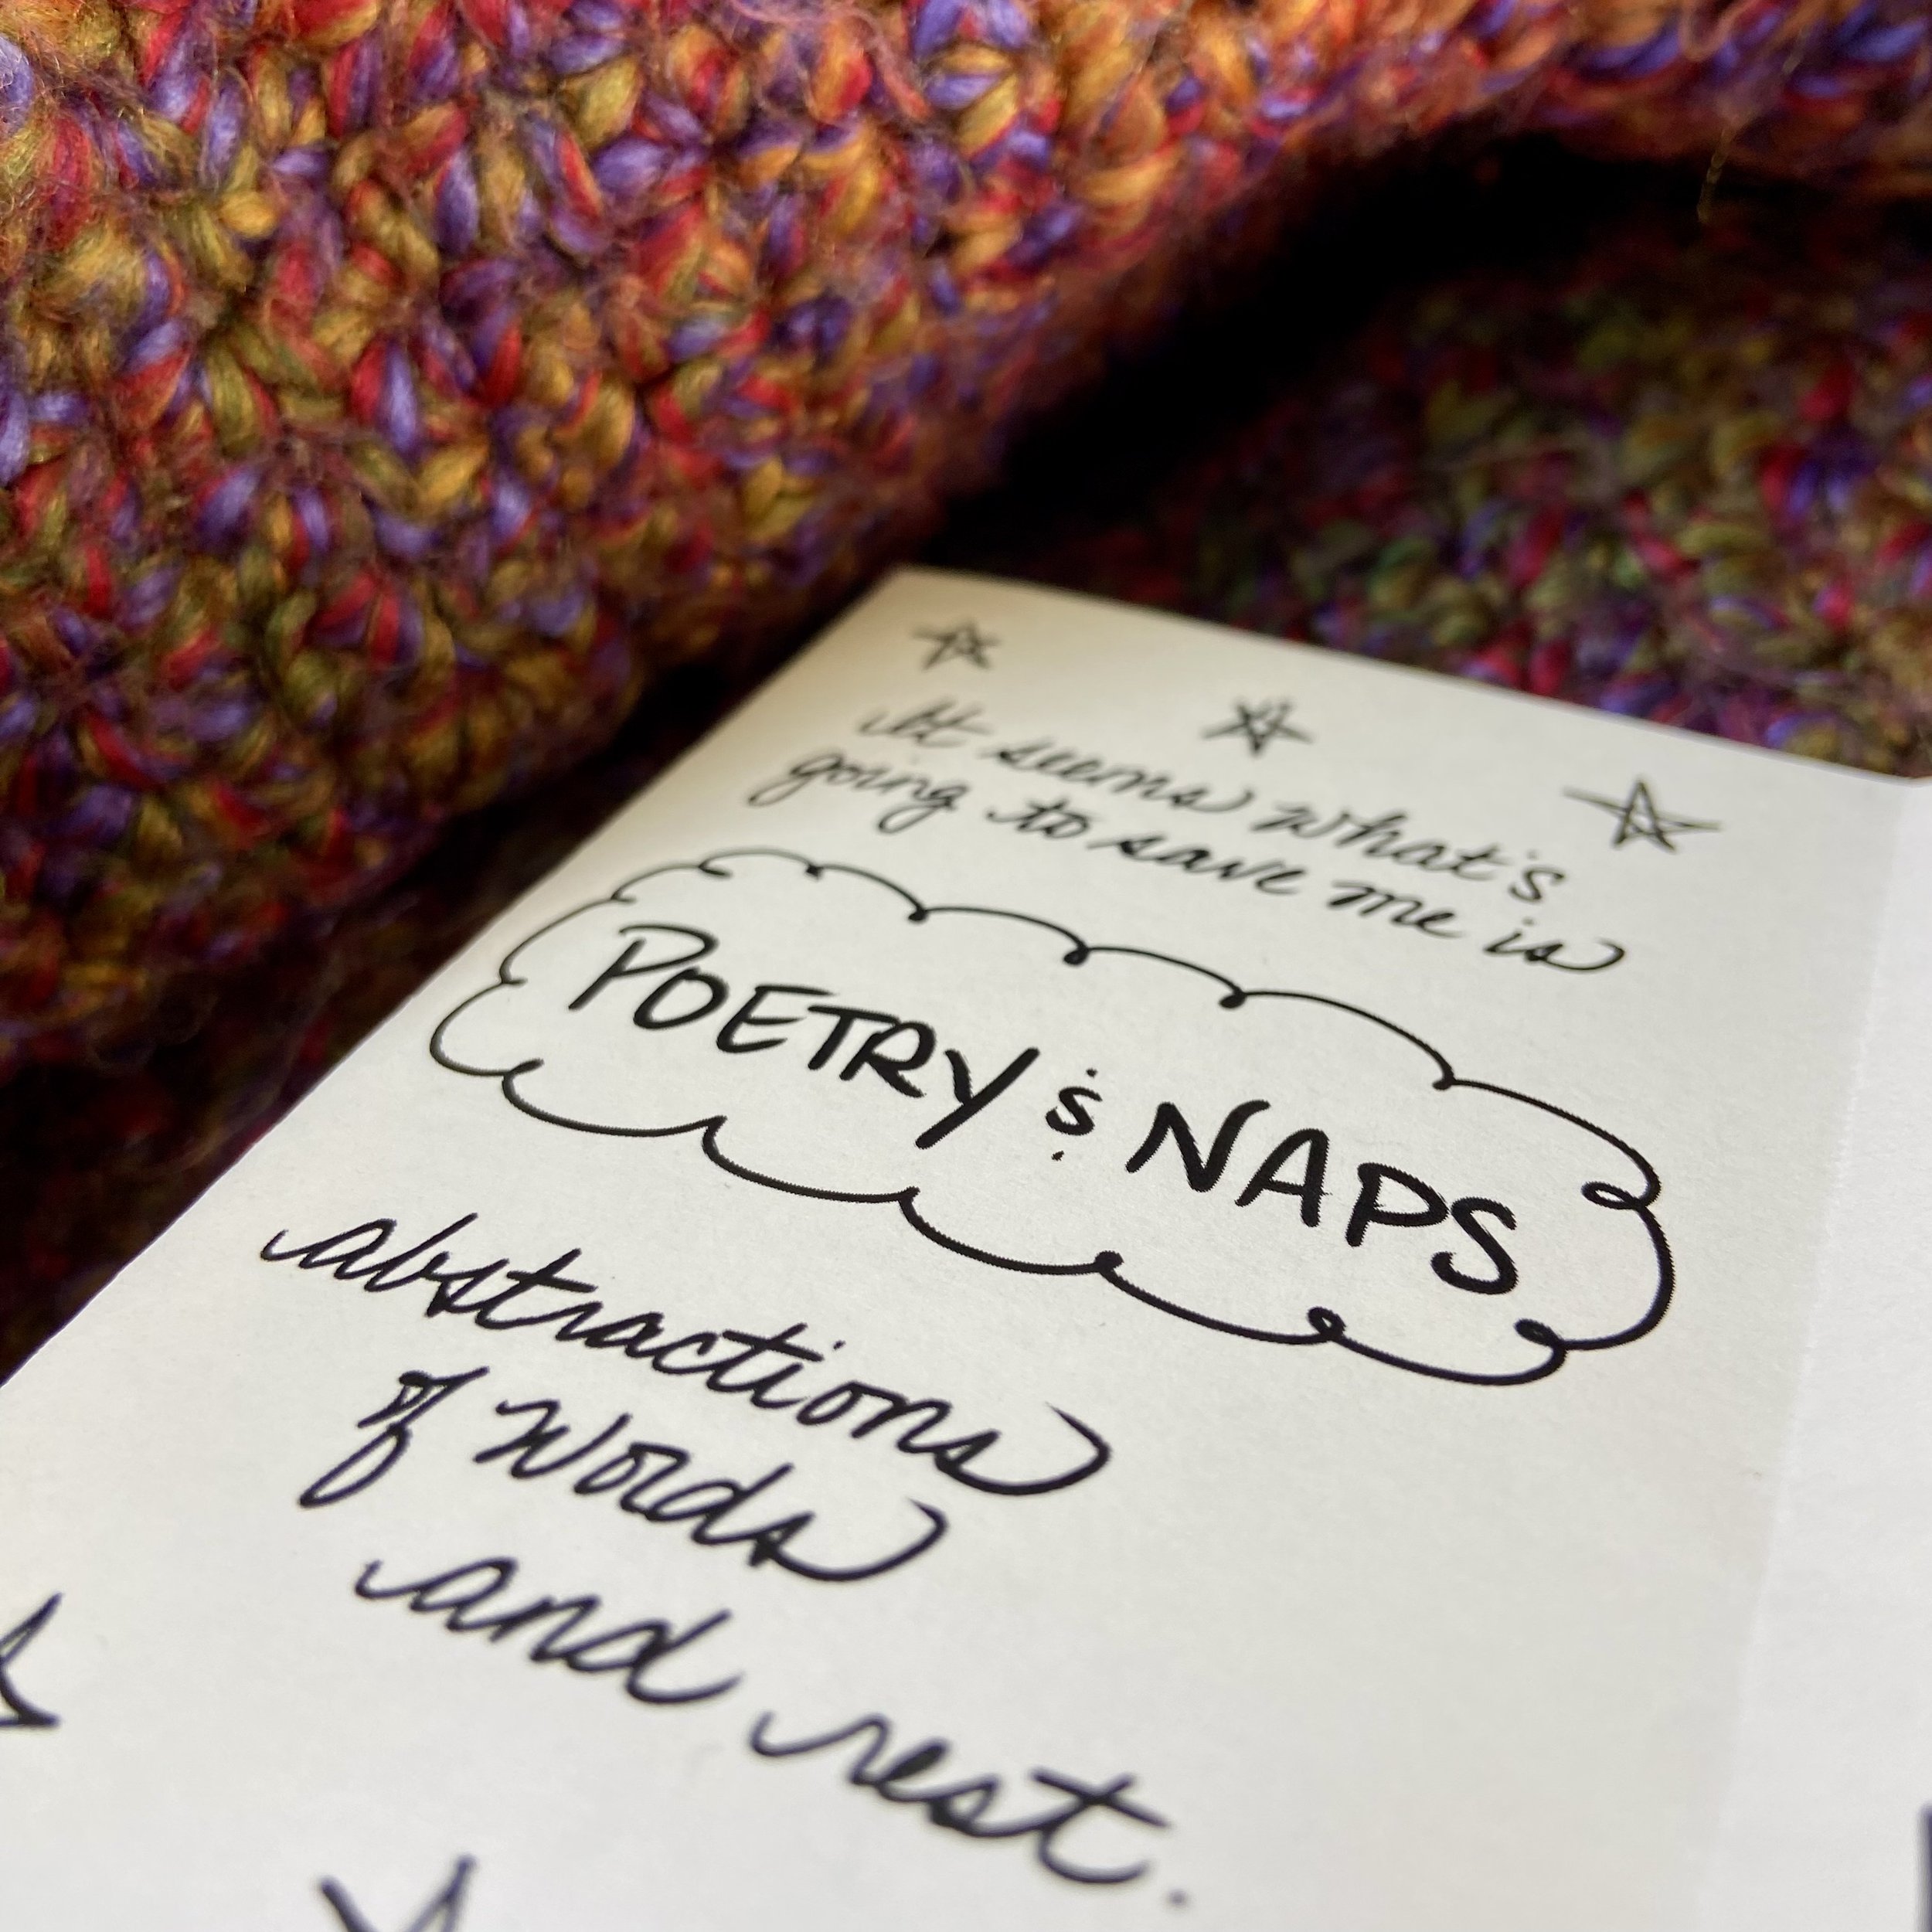 It seems what's
going to save me is
POETRY & NAPS
abstractions
of words
and rest.